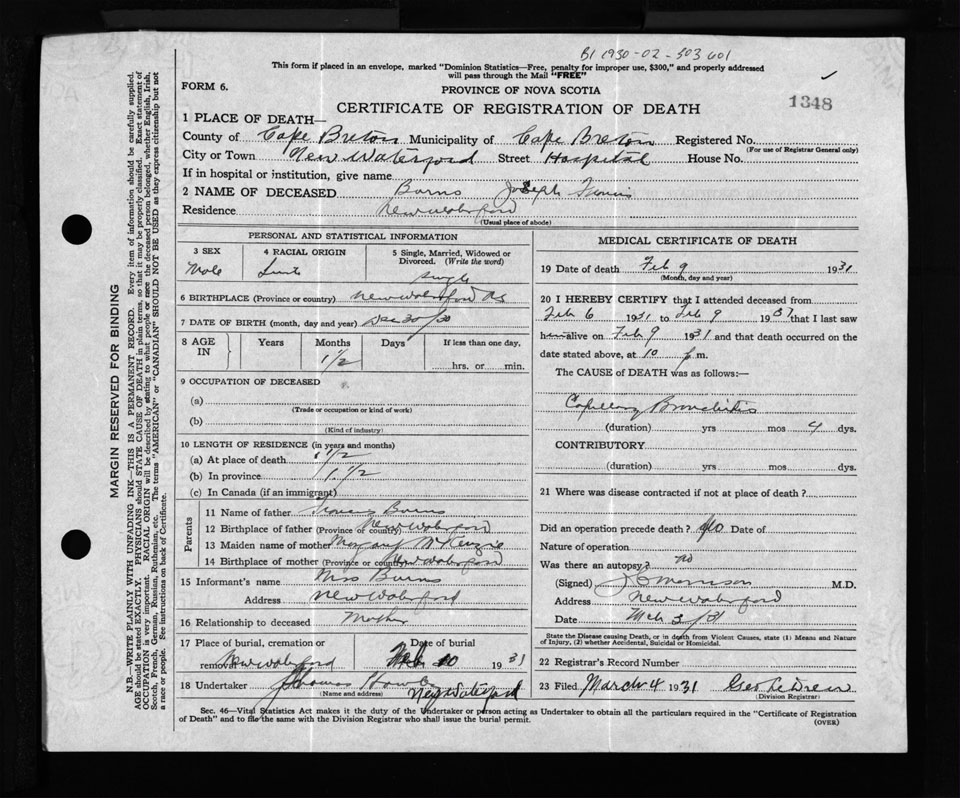 B1 1930-02-503 601
This form if placed in an envelope, marked "Dominion Statistics—Free, penalty for improper use, $300," and properly addressed
will pass through the Mail "FREE"
FORM 6.
PROVINCE OF NOVA SCOTIA
CERTIFICATE OF REGISTRATION OF DEATH
1348
1 PLACE OF DEATH—
County of Cape Breton Municipality of Cape Breton Registered No.
(For use of Registrar General only)
City or Town New Waterford Street Hospital House No.
If in hospital or institution, give name
2 NAME OF DECEASED Burns Joseph
Residence New Waterford
(Usual place of abode)
PERSONAL AND STATISTICAL INFORMATION
3 SEX 4 RACIAL ORIGIN 5 Single, Married, Widowed or
Divorced. (Write the word)
Male single
6 BIRTHPLACE (Province or country) New Waterford NS
7 DATE OF BIRTH (month, day and year) Dec 30/30
8 AGE IN Years Months Days If less than one day,
1 1/2
hrs. or min.
9 OCCUPATION OF DECEASED
(a)
(Trade or occupation or kind of work)
(b)
(Kind of industry)
10 LENGTH OF RESIDENCE (in years and months)
(a) At place of death 1 1/2
(b) In province 1 1/2
(c) In Canada (if an immigrant)
Parents
11 Name of father Burns
12 Birthplace of father (Province or country) New Waterford
13 Maiden name of mother Margaret McKenzie
14 Birthplace of mother (Province or country) New Waterford
15 Informant's name Mrs Burns
Address New Waterford
16 Relationship to deceased Mother
17 Place of burial, cremation or Date of burial
removal New Waterford Feb 10 1931
18 Undertaker Thomas New Waterford
(Name and address)
MEDICAL CERTIFICATE OF DEATH
19 Date of death Feb 9 1931
(Month, day and year)
20 I HEREBY CERTIFY that I attended deceased from
Feb 6 1931 to Feb 9 1931 that I last saw
him alive on Feb 9 1931 and that death occurred on the
date stated above, at 10 p.m.
The CAUSE of DEATH was as follows:—
Capillary Bronchitis
(duration) yrs mos 4 dys.
CONTRIBUTORY
(duration) yrs mos dys.
21 Where was disease contracted if not at place of death?
Did an operation precede death? No Date of
Nature of operation
Was there an autopsy? no
(Signed) Morrison M.D.
Address New Waterford
Date Mch 3/31
State the Disease causing Death, or in death from Violent Causes, state (1) Means and Nature
of Injury, (2) whether Accidental, Suicidal or Homicidal.
22 Registrar's Record Number
23 Filed March 4 1931 Geo
(Division Registrar)
Sec. 46—Vital Statistics Act makes it the duty of the Undertaker or person acting as Undertaker to obtain all the particulars required in the "Certificate of Registration
of Death" and to file the same with the Division Registrar who shall issue the burial permit.
(OVER)
MARGIN RESERVED FOR BINDING
N.B.—WRITE PLAINLY WITH UNFADING INK—THIS IS A PERMANENT RECORD. Every item of information should be carefully supplied.
AGE should be stated EXACTLY. PHYSICIANS should STATE CAUSE OF DEATH in plain terms, so that it may be properly classified. Exact statement of
OCCUPATION is very important. RACIAL ORIGIN will be described by stating to what people or race the deceased person belonged, whether English, Irish,
Scotch, French, German, Russian, Ruthenian, etc. The terms "AMERICAN" or "CANADIAN" SHOULD NOT BE USED as they express citizenship but not
a race or people. See instructions on back of Certificate.